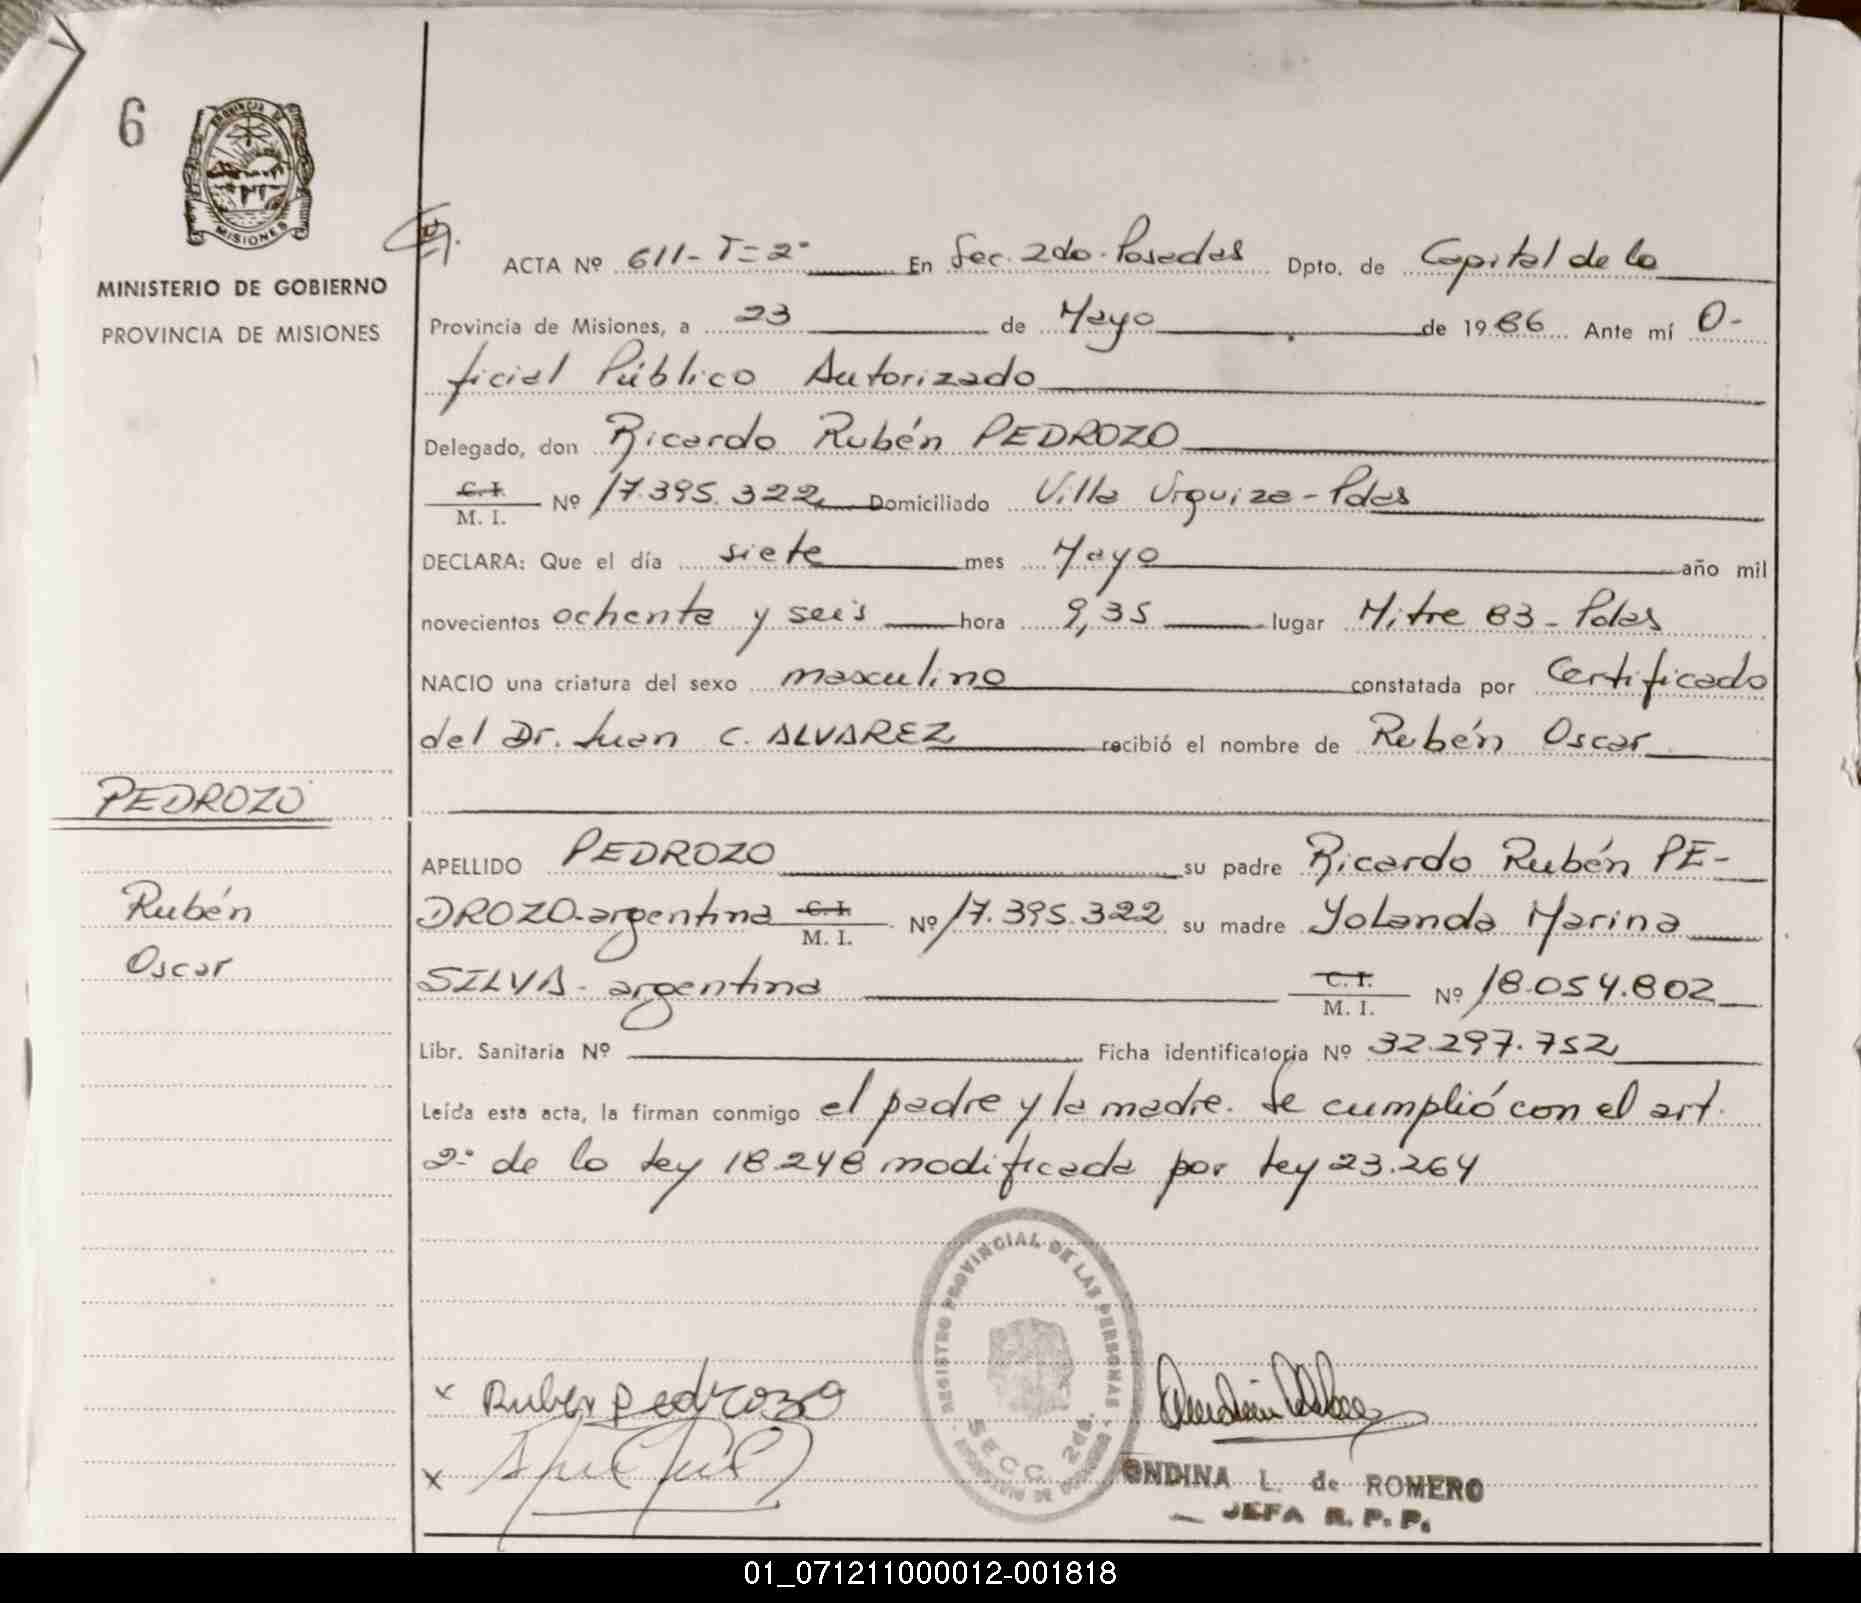 6
PROVINCIA DE
MISIONES
MINISTERIO DE GOBIERNO
PROVINCIA DE MISIONES
ACTA Nº 611-T=2º En Sec. 2do. Posadas Dpto. de Capital de la
Provincia de Misiones, a 23 de Mayo de 1986 Ante mí O-
ficial Público Autorizado
Delegado, don Ricardo Rubén PEDROZO
C.I. M. I. Nº 17.395.322 Domiciliado Villa Urquiza - Pdas
DECLARA: Que el día siete mes Mayo año mil
novecientos ochenta y seis hora 9,35 lugar Mitre 83 - Pdas
NACIO una criatura del sexo masculino constatada por Certificado
del Dr. Juan C. ALVAREZ recibió el nombre de Rubén Oscar
PEDROZO
Rubén
Oscar
APELLIDO PEDROZO su padre Ricardo Rubén PE-
DROZO-argentina C.I. M. I. Nº 17.395.322 su madre Yolanda Marina
SILVA - argentina C.I. M. I. Nº 18.054.802
Libr. Sanitaria Nº Ficha identificatoria Nº 32.297.752
Leída esta acta, la firman conmigo el padre y la madre. Se cumplió con el art.
2º de la Ley 18.248 modificada por Ley 23.264
REGISTRO PROVINCIAL DE LAS PERSONAS
SECC. 2da.
x Ruben Pedrozo
x
ONDINA L. de ROMERO
JEFA R. P. P.
01_071211000012-001818